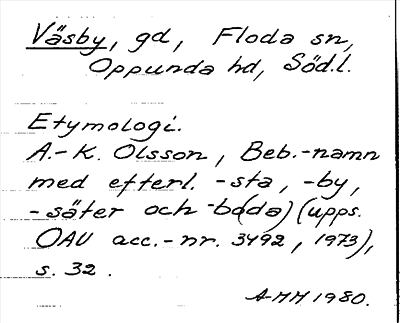 Väsby, gd, Floda sn,
Oppunda hd, Söd.l.
Etymologi.
A.-K. Olsson, Beb.-namn
med efterl. -sta, -by,
-säter och -bo(da) (upps.
OAU acc.-nr. 3492, 1973),
s. 32.
AMH 1980.